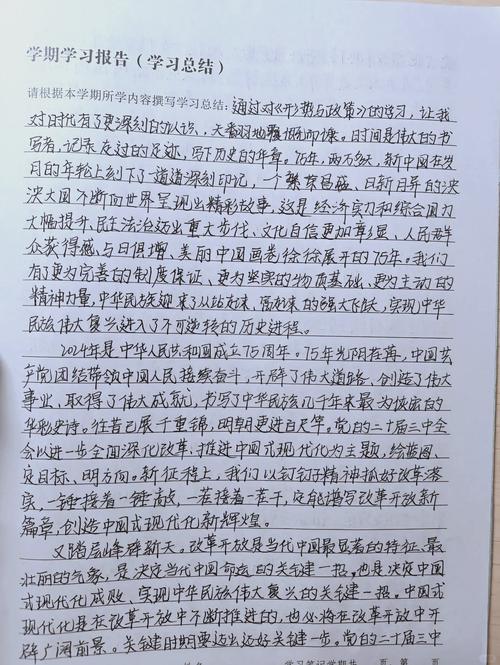 学期学习报告(学习总结)
请根据本学期所学内容撰写学习总结:通过对《形势与政策》的学习,让我
对时代有了更深刻的认识,天翻地覆慨而慷。时间是伟大的书
写者,记录走过的足迹,写下历史的年章。75年,两万多天,新中国在岁
月的年轮上刻下了一道道深刻印记,一个繁荣昌盛、日新月异的泱
泱大国不断向世界呈现出精彩故事。这是经济实力和综合国力
大幅提升、民主法治迈出重大步伐、文化自信更加彰显、人民群
众获得感与日俱增、美丽中国画卷徐徐展开的75年。我们
有了更为完善的制度保证、更为坚实的物质基础、更为主动的
精神力量,中华民族迎来了从站起来、富起来的强大飞跃,实现中华
民族伟大复兴进入了不可逆转的历史进程。
2024年是中华人民共和国成立75周年。75年光阴在苒,中国共
产党团结带领中国人民接续奋斗,开辟了伟大道路、创造了伟大
事业,取得了伟大成就,书写了中华民族几千年来最为恢宏的
华彩史诗。往昔已展千重锦,明朝更进百尺竿。党的二十届三中全
会以进一步全面深化改革、推进中国式现代化为主题,绘蓝图、
定目标、明方向。新征程上,我们以钉钉子精神抓好改革落
实,一锤接着一锤敲,一茬接着一茬干,定能谱写改革开放新
篇章,创造中国式现代化新辉煌。
又踏层峰辟新天。改革开放是当代中国最显著的特征、最
壮丽的气象,是决定当代中国命运的关键一招,也是决定中国
式现代化成败,实现中华民族伟大复兴的关键一招。中国式
现代化是在改革开放中不断推进的,也必将在改革开放中开
辟广阔前景。关键时期要迈出迈好关键一步。党的二十届三中
学习笔记学期共 页 第 页